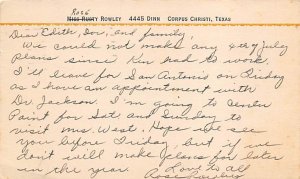 Rose
Miss Rusty Rowley 4445 Dinn Corpus Christi, Texas
Dear Edith, Don, and family,
We could not make any 4th July
plans since Ken had to work.
I'll leave for San Antonio on Friday
as I have an appointment with
Dr Jackson. I'm going to Center
Point for Sat. and Sunday to
visit Mrs. West. Hope we see
you before Friday, but if we
don't will make plans for later
in the year. Love to all